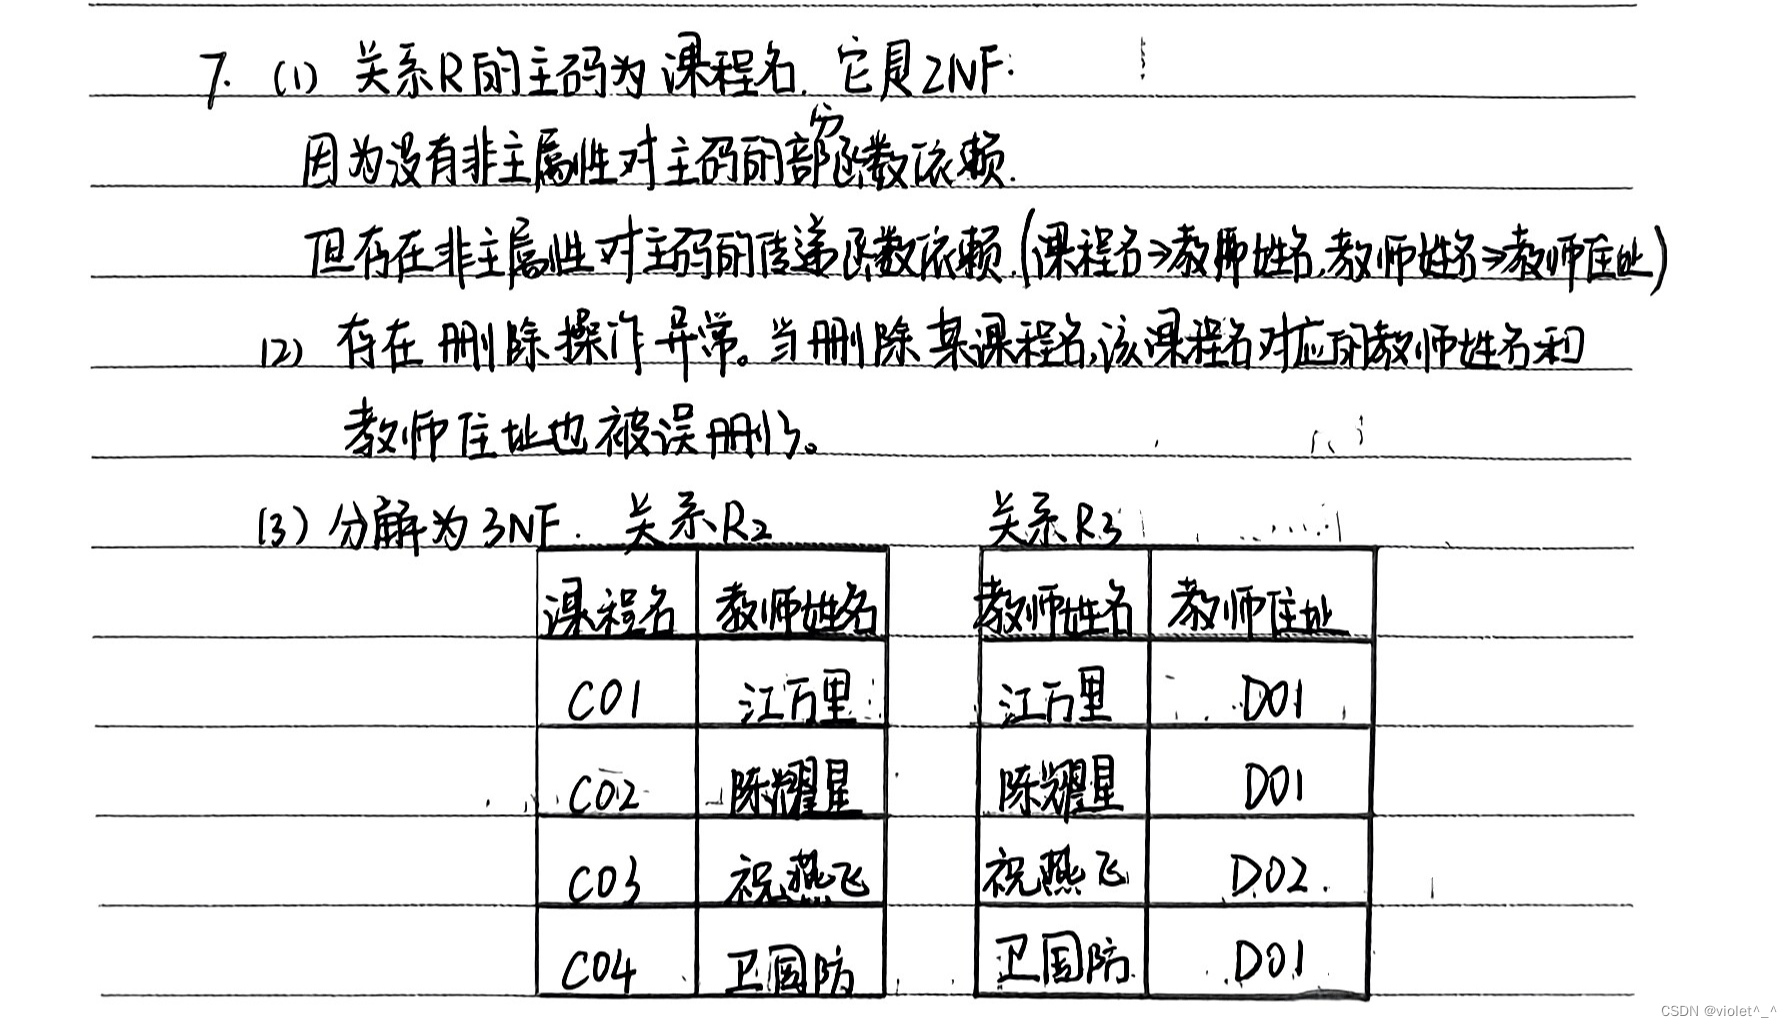 7. (1) 关系R的主码为课程名. 它是2NF.
因为没有非主属性对主码的部分函数依赖.
但存在非主属性对主码的传递函数依赖.(课程名→教师姓名,教师姓名→教师住址)
(2) 存在删除操作异常。当删除某课程名,该课程名对应的教师姓名和
教师住址也被误删了。
(3) 分解为3NF. 关系R2 关系R3
课程名 教师姓名 教师姓名 教师住址
C01 江万里 江万里 D01
C02 陈耀星 陈耀星 D01
C03 祝燕飞 祝燕飞 D02
C04 卫国防 卫国防 D01
CSDN @violet^_^